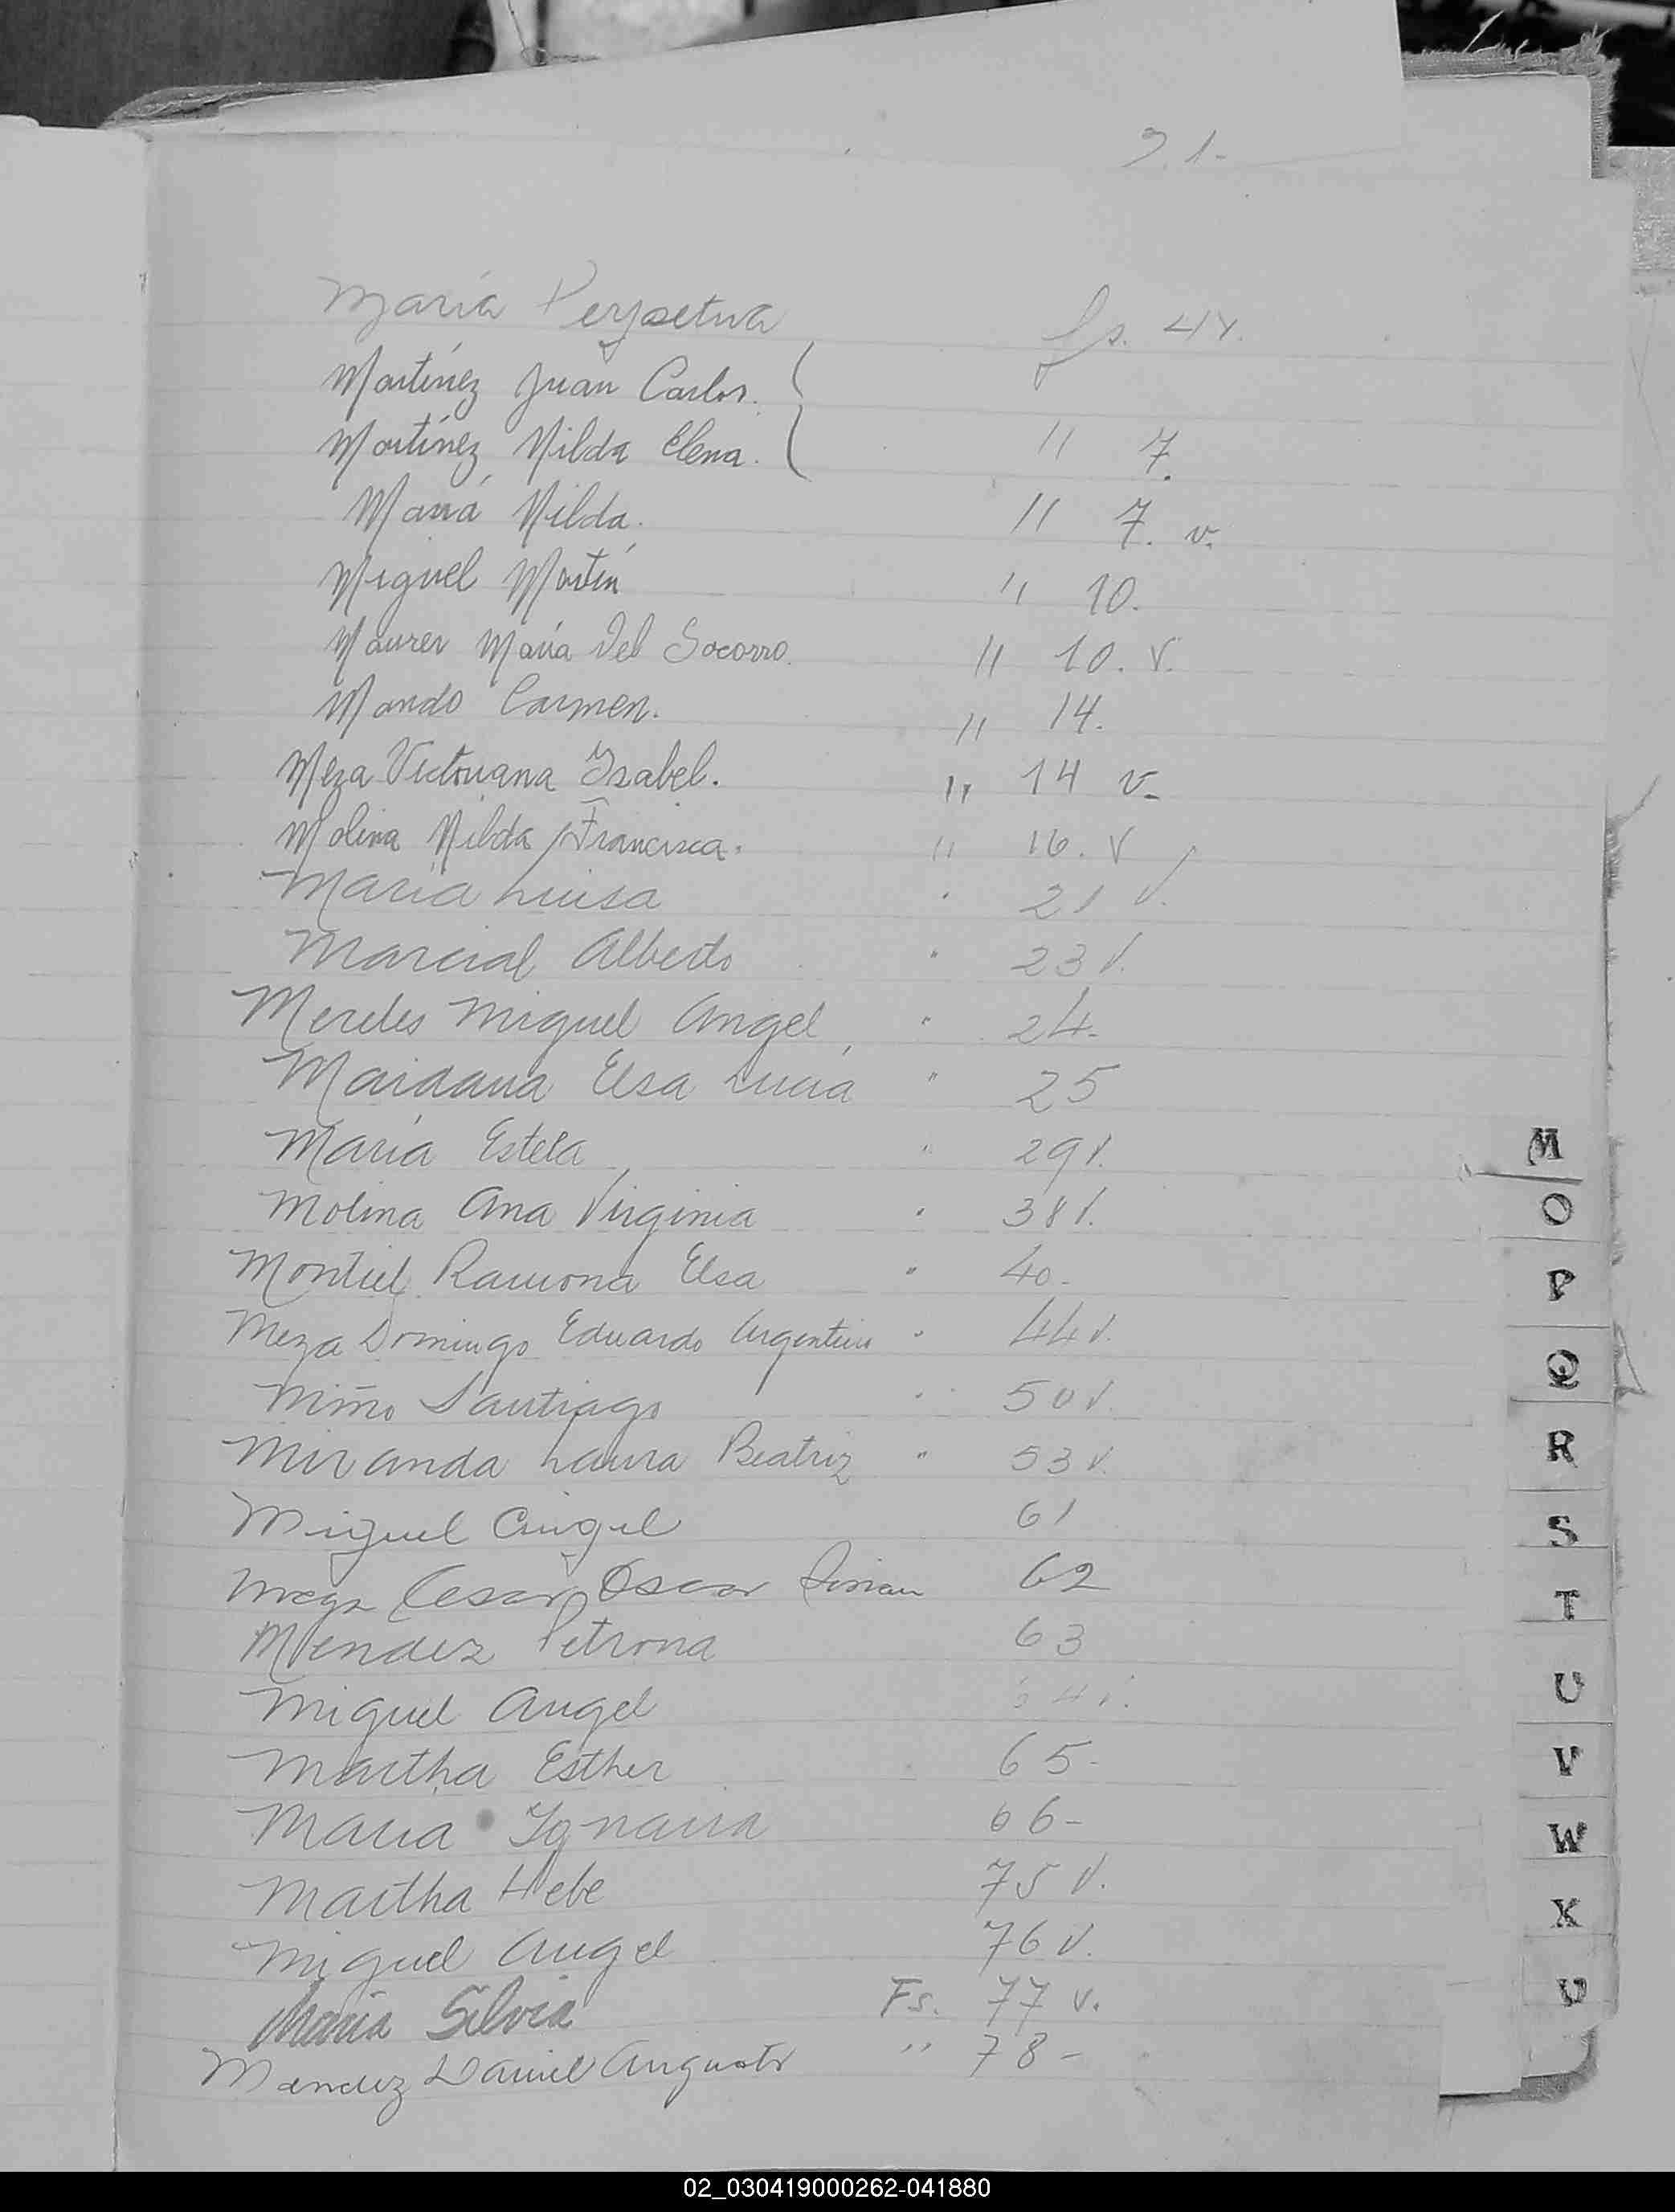 21-
Maria Perpetua fs. 4v.
Martínez Juan Carlos.
Martínez Nilda Elena. " 7.
María Nilda. " 7. v.
Miguel Martín " 10.
Maurer María Del Socorro. " 10. v.
Mando Carmen. " 14.
Meza Victoriana Isabel. " 14 v.
Molina Nilda Francisca. " 16. v
Maria Luisa " 21 v.
Marcial Alberto " 23 v.
Mereles Miguel Angel " 24-
Maidana Elsa Lucia " 25
Maria Estela " 29 v.
Molina Ana Virginia " 38 v.
Montiel Ramona Elsa " 40-
Meza Domingo Eduardo Argentino " 44 v.
Miño Santiago " 50 v.
Miranda Laura Beatriz " 53 v.
Miguel Angel 61
Meza Cesar Oscar 62
Mendez Petrona 63
Miguel Angel 64 v.
Martha Esther 65-
Maria Ignacia 66-
Martha Hebe 75 v.
Miguel Angel 76 v.
María Silvia Fs. 77 v.
Mendez Daniel Augusto " 78-
M
O
P
Q
R
S
T
U
V
W
X
02_030419000262-041880